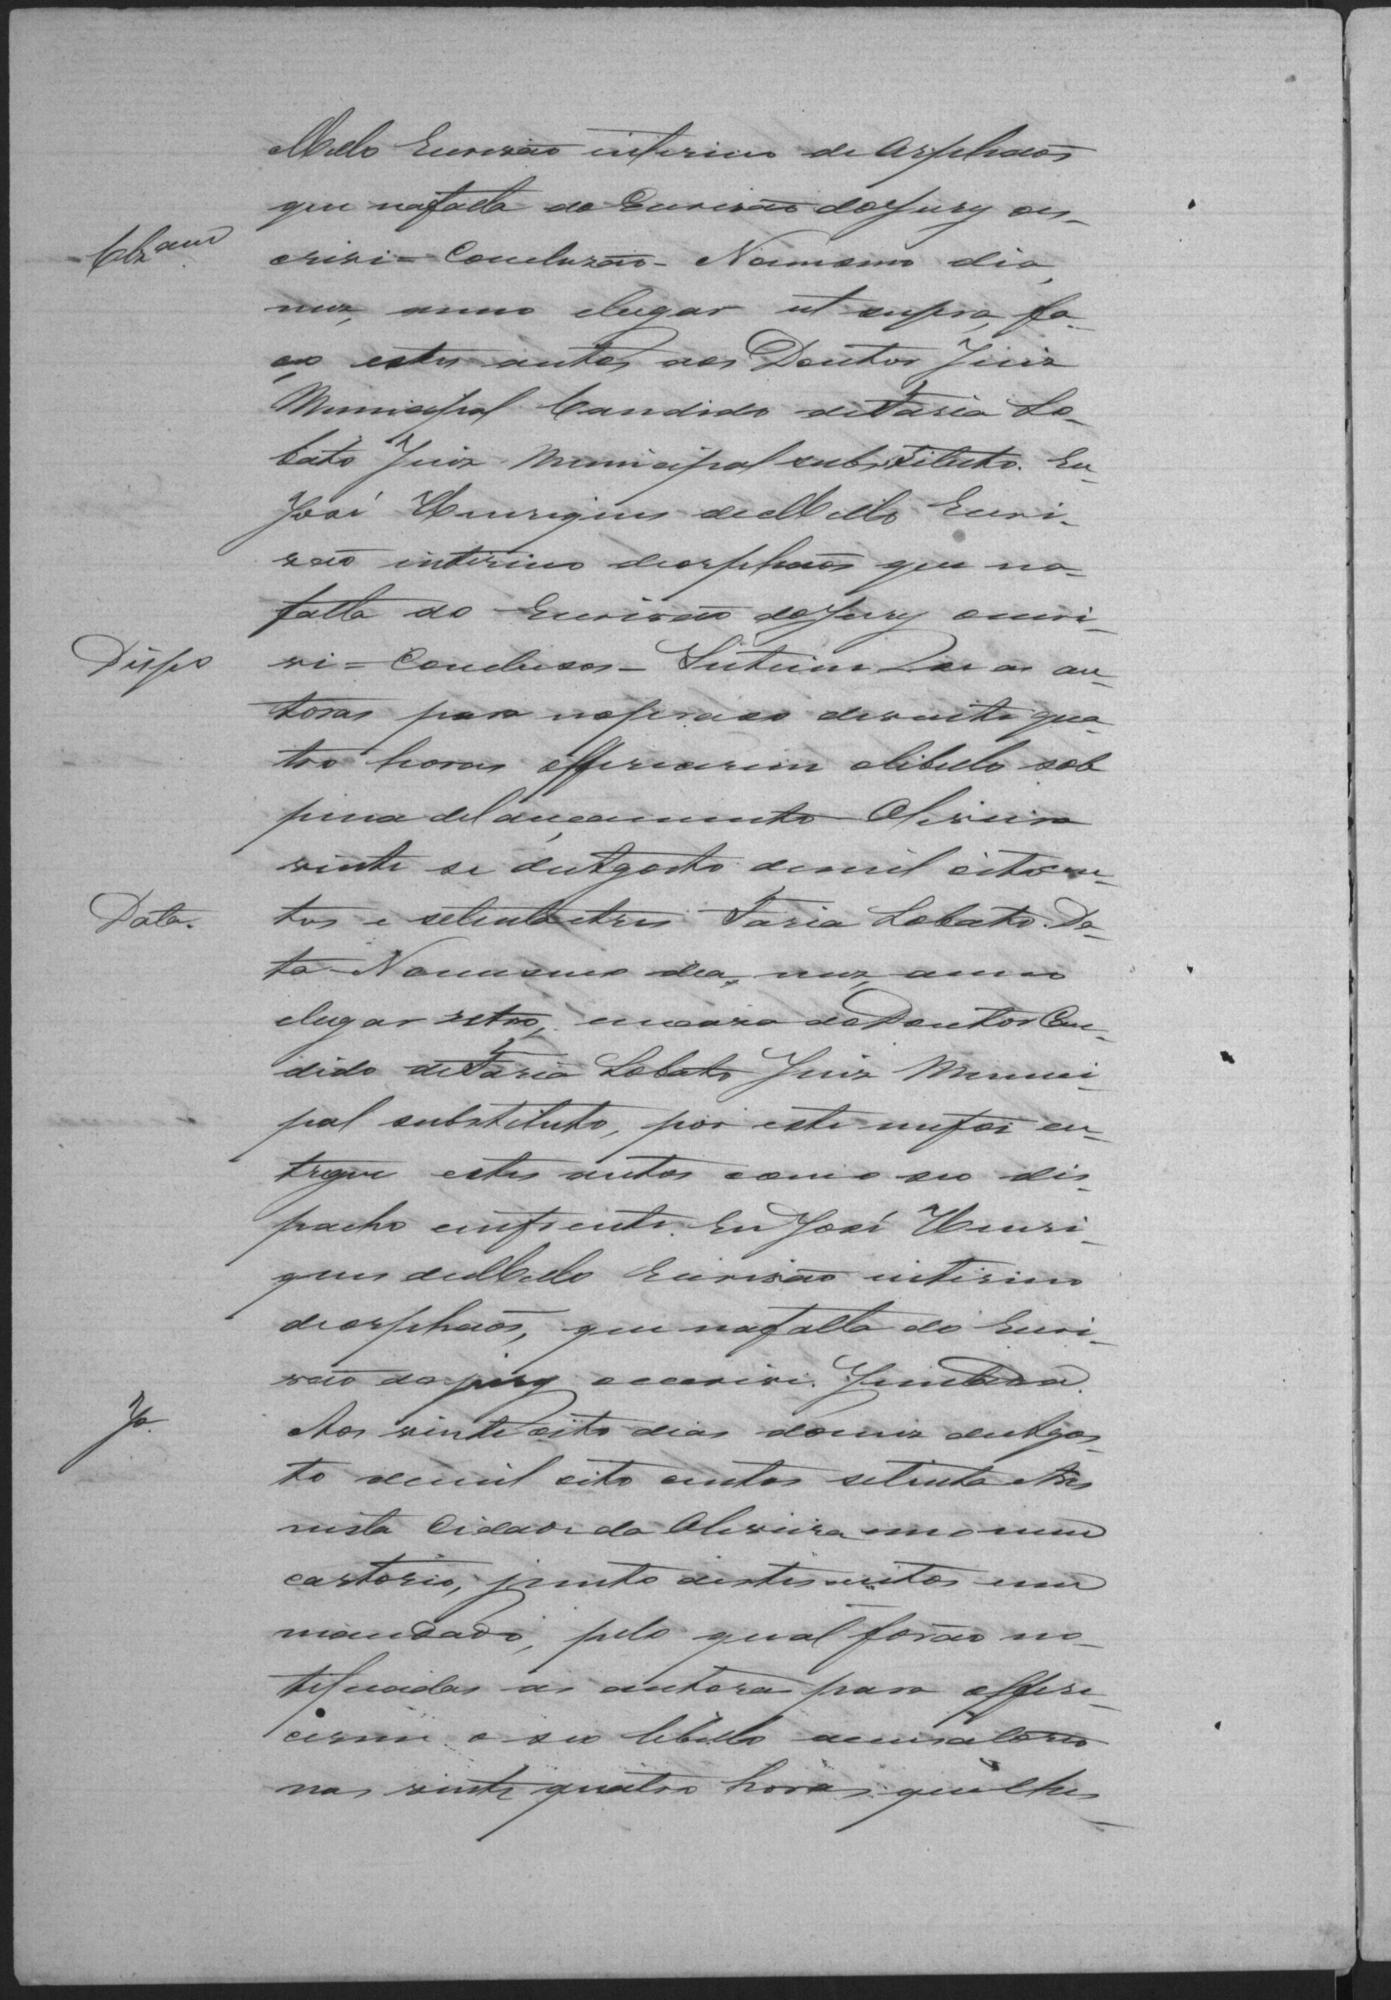 Mello Escrivão interino de Orphaõs
que nafalta do Escrivão doJury es-
Clzam
crivi = Concluzão - Nomesmo dia,
mez, anno elugar ut supra, fa-
ço estes autos aos Doutor Juiz
Municipal Candido deFaria Lo-
bato Juiz Municipal substituto. Eu
José Henriques deMello Escri-
vão interino deorphaõs que na-
falta do Escrivão doJury escri-
Dispo
vi = Conclusos - Intimem se as au-
toras para noprazo devinte qua-
tro horas offerecerem olibello sob
pena delançamento Oliveira
vinte se deAgosto demil oitocen-
Data.
tos e setenta etres Faria Lobato. Da-
ta Nomesmo dia, mez, anno
elugar retro, emcaza doDoutor Can-
dido deFaria Lobato Juiz Munici-
pal substituto, por este mefoi en-
tregue estes autos com o seo des-
pacho emfrente. Eu José Henri-
ques deMello Escrivão interino
deorphaõs, que nafalta do Escri-
vão dojury oescrivi. Juntada.
Ja.
Aos vinteoito dias domez deAgos-
to demil oito centos setenta etres
nesta Cidade da Oliveira em o meu
cartorio, junto aestes autos um
mandado, pelo qual forão no-
tificadas as autoras para offere-
cerem o seo libello accusatorio
nas vinte quatro horas quelhes